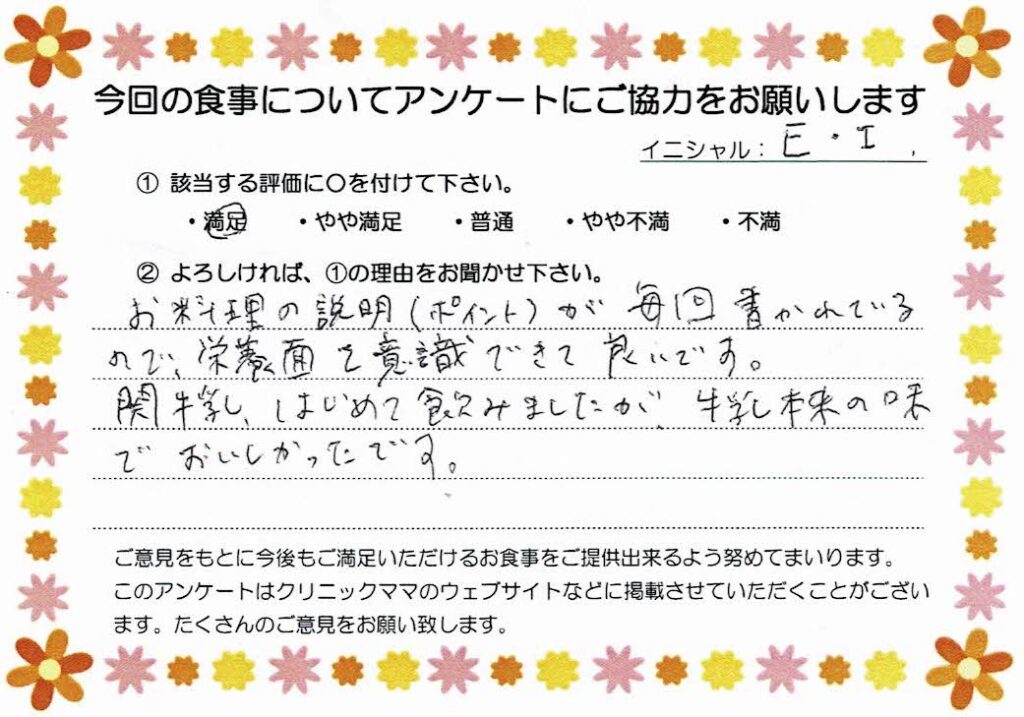 今回の食事についてアンケートにご協力をお願いします
イニシャル： E・I.
① 該当する評価に○を付けて下さい。
・満足 ・やや満足 ・普通 ・やや不満 ・不満
② よろしければ、①の理由をお聞かせ下さい。
お料理の説明(ポイント)が 毎回 書かれている
ので、栄養面を意識できて 良いです。
関牛乳、はじめて飲みましたが、牛乳本来の味
で おいしかったです。
ご意見をもとに今後もご満足いただけるお食事をご提供出来るよう努めてまいります。
このアンケートはクリニックママのウェブサイトなどに掲載させていただくことがござい
ます。たくさんのご意見をお願い致します。